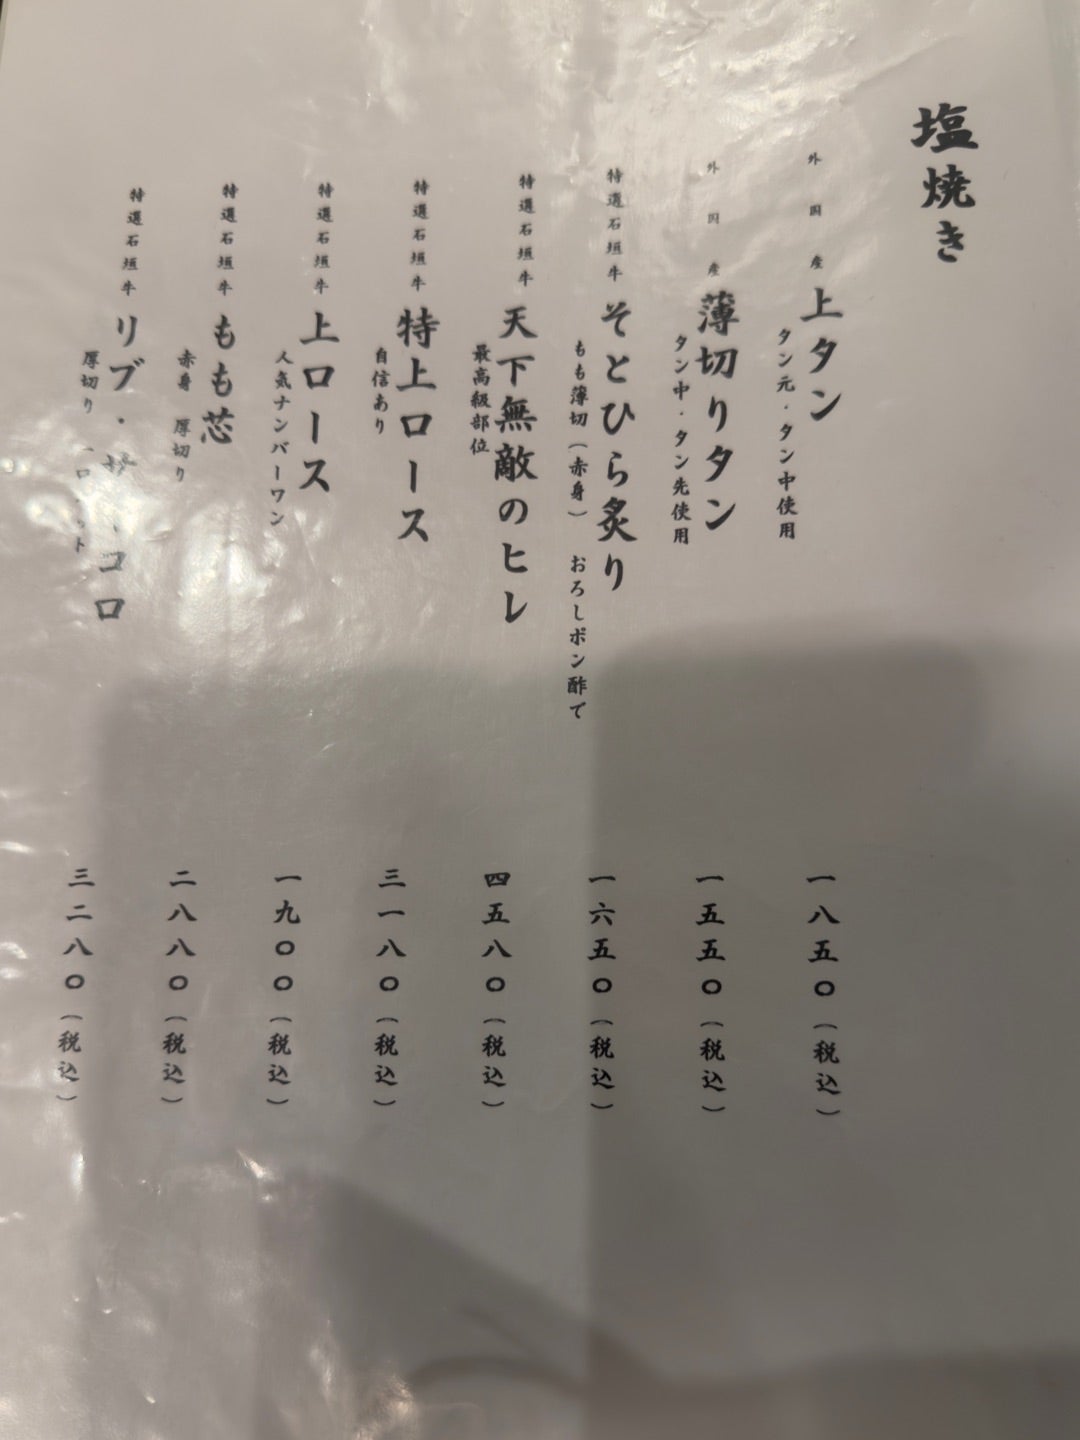 塩焼き
外国産 上タン
タン元・タン中使用
一八五〇（税込）
外国産 薄切りタン
タン中・タン先使用
一五五〇（税込）
特選石垣牛 そとひら炙り
もも薄切（赤身） おろしポン酢で
一六五〇（税込）
特選石垣牛 天下無敵のヒレ
最高級部位
四五八〇（税込）
特選石垣牛 特上ロース
自信あり
三一八〇（税込）
特選石垣牛 上ロース
人気ナンバーワン
一九〇〇（税込）
特選石垣牛 もも芯
赤身 厚切り
二八八〇（税込）
特選石垣牛 リブ・ コロ
厚切り
三二八〇（税込）